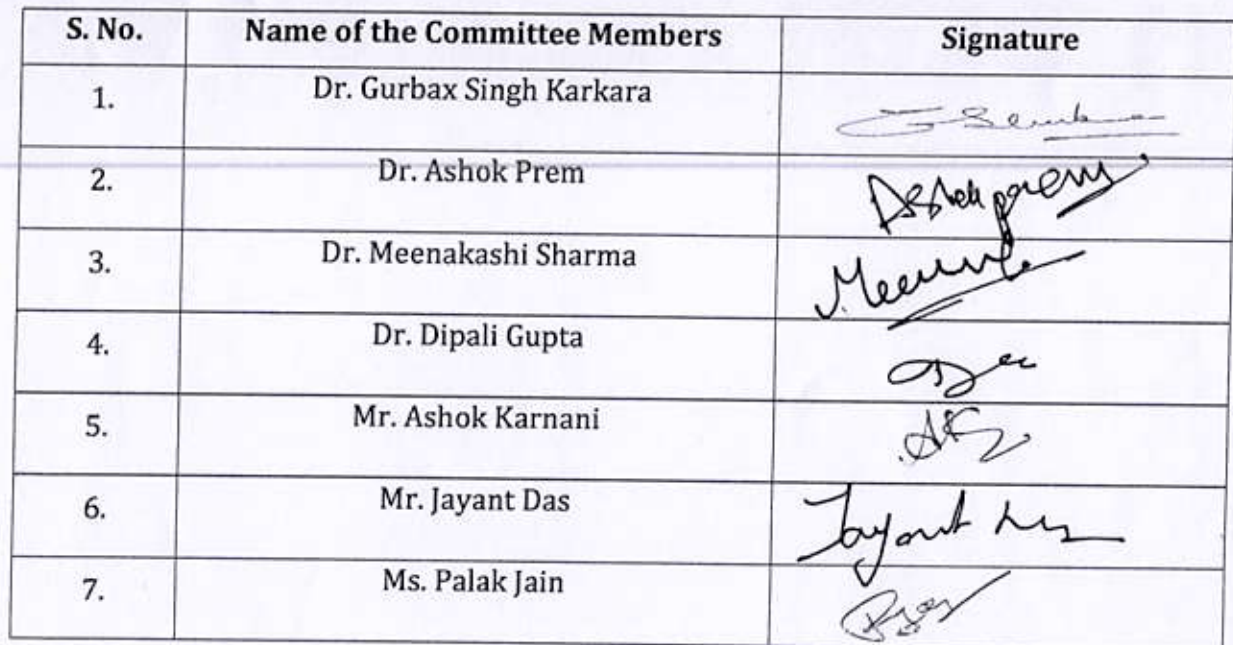 S. No. Name of the Committee Members Signature
1. Dr. Gurbax Singh Karkara
2. Dr. Ashok Prem Ashok Prem
3. Dr. Meenakashi Sharma
4. Dr. Dipali Gupta
5. Mr. Ashok Karnani
6. Mr. Jayant Das Jayant Das
7. Ms. Palak Jain